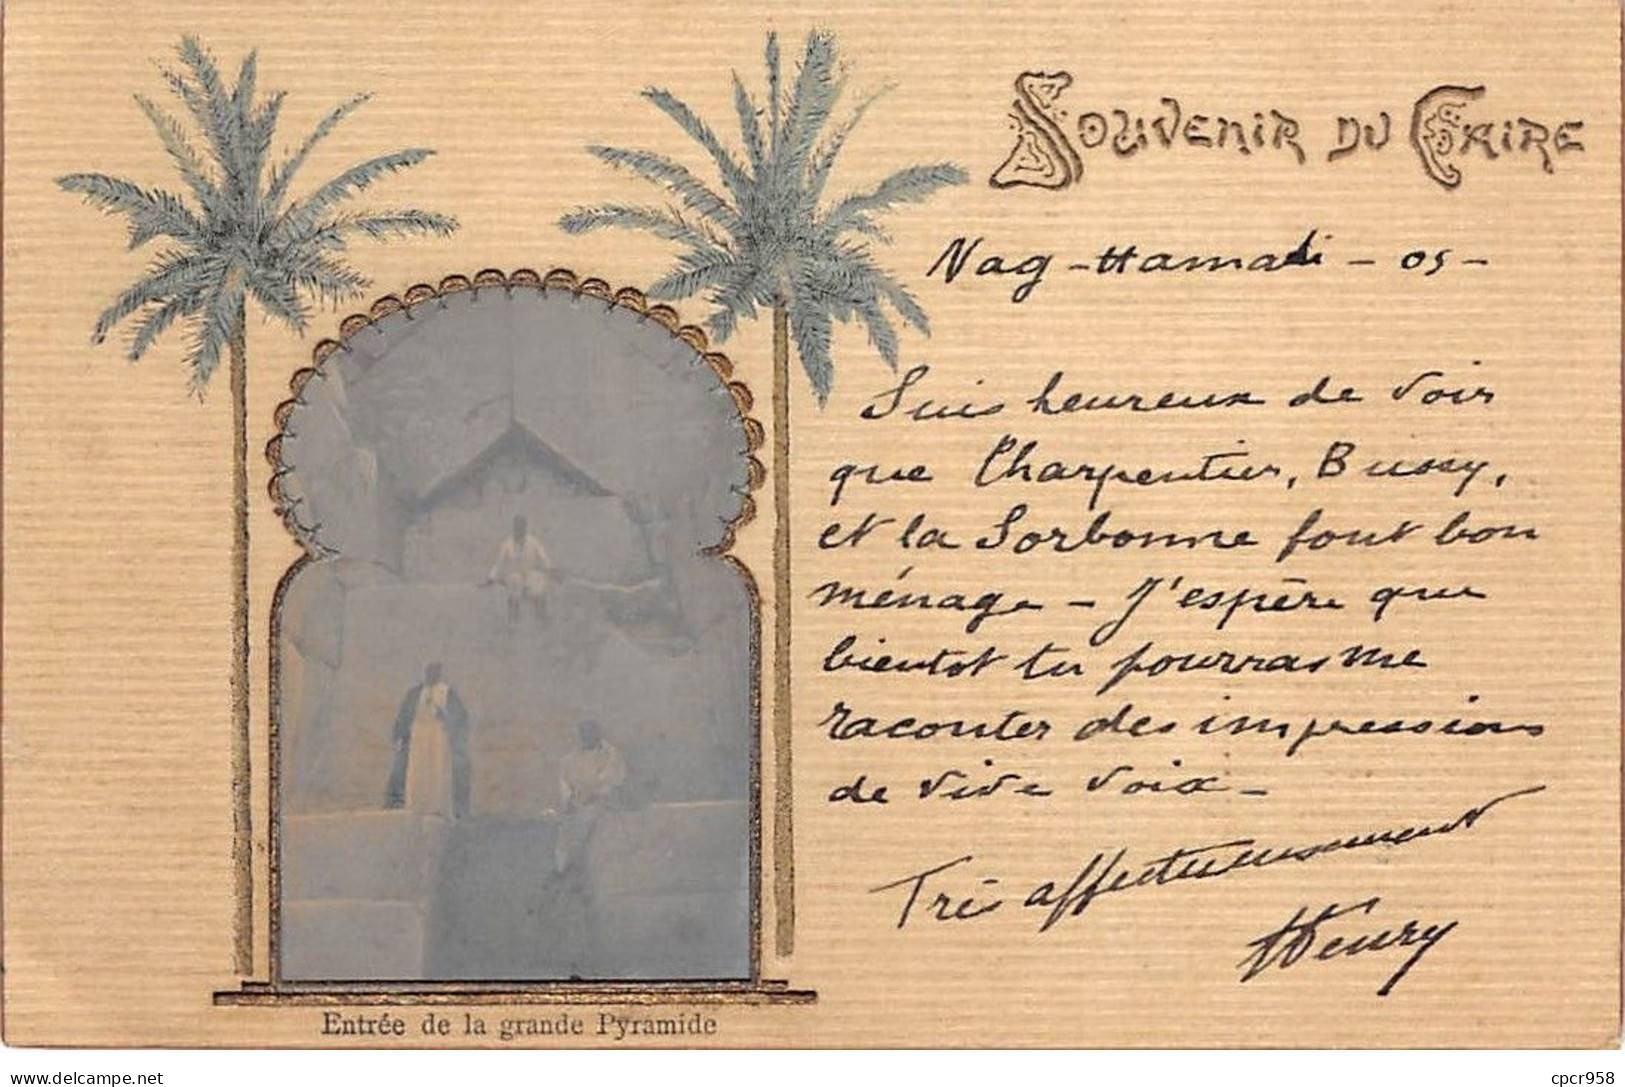 Souvenir du Caire
Nag-Hamadi - 05 -
Suis heureux de voir
que Charpentier, Bussy,
et la Sorbonne font bon
ménage - J'espère que
bientot tu pourras me
raconter des impressions
de vive voix -
Très affectueusement
Henry
Entrée de la grande Pyramide
delcampe.net
cpcr958